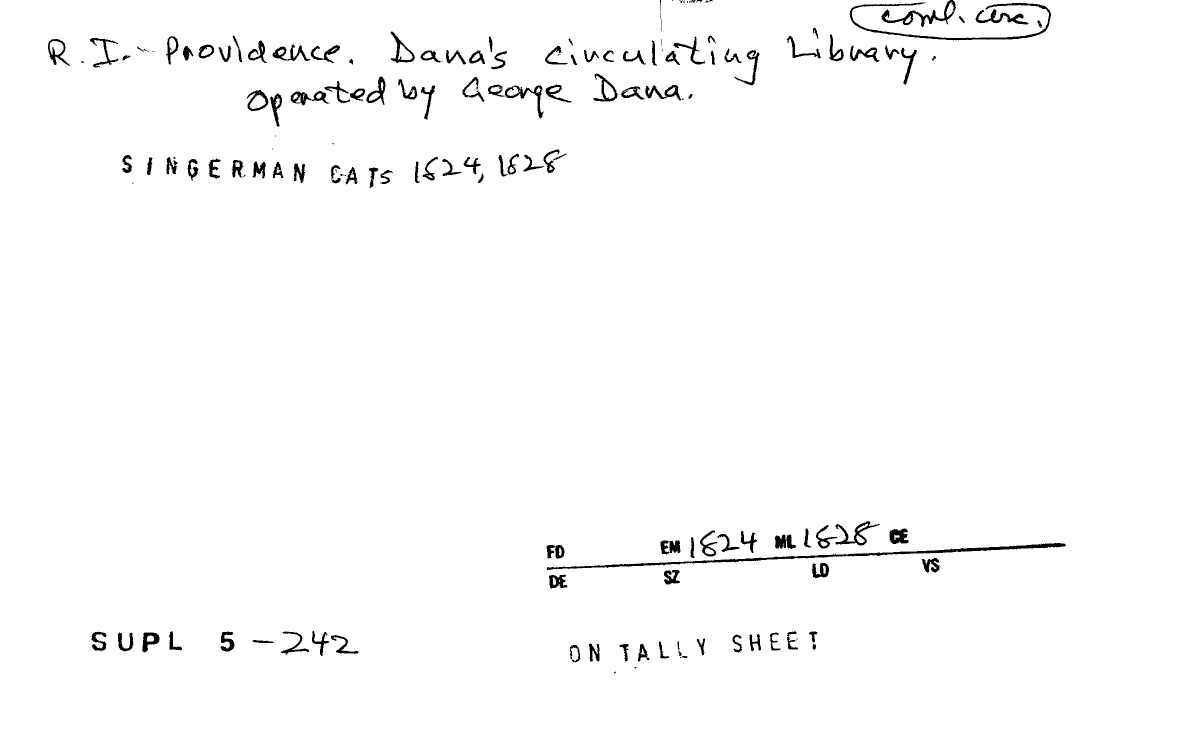 coml. circ.
R.I.- Providence. Dana's Circulating Library.
Operated by George Dana.
SINGERMAN CATS 1824, 1828
FD EM 1824 ML 1828 CE
DE SZ LD VS
SUPL 5-242
ON TALLY SHEET